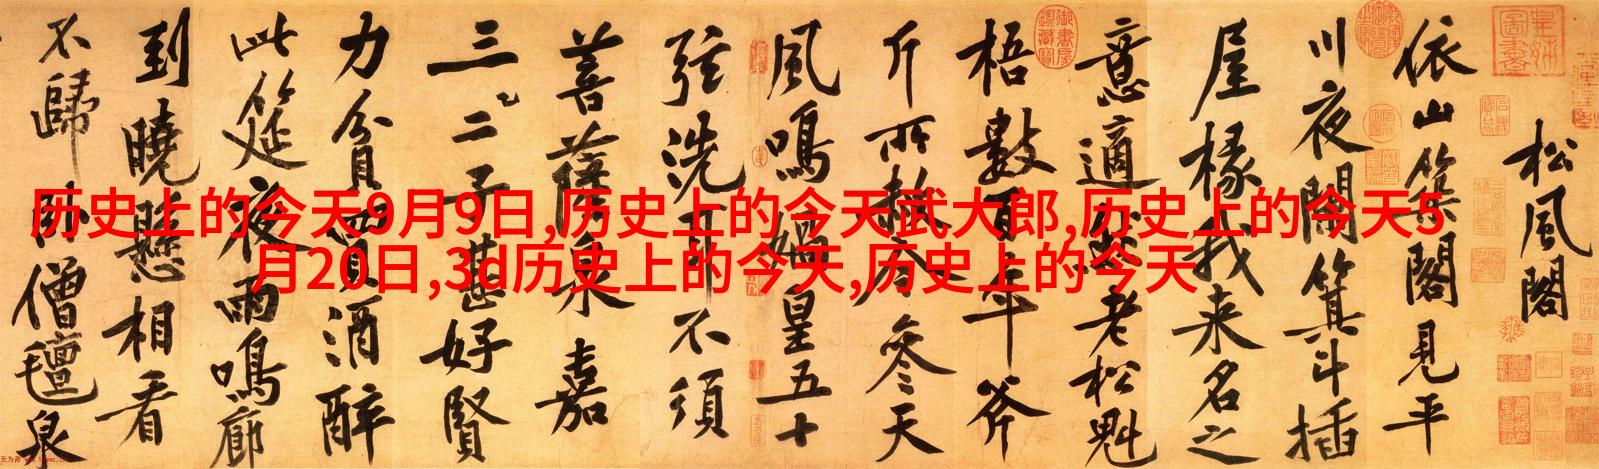 历史上的今天9月9日,历史上的今天武大郎,历史上的今天5
月20日,3d历史上的今天,历史上的今天
松風閣
依山築閣見平
川夜闌箕斗插
屋椽我来名之
意適然老松魁
梧數百年斧
斤所赦今參天
風鳴媧皇五十
弦洗耳不須
菩薩泉嘉
三二子甚好賢
力貧買酒醉
此筵夜雨鳴廊
到曉懸相看
不歸臥僧氊泉